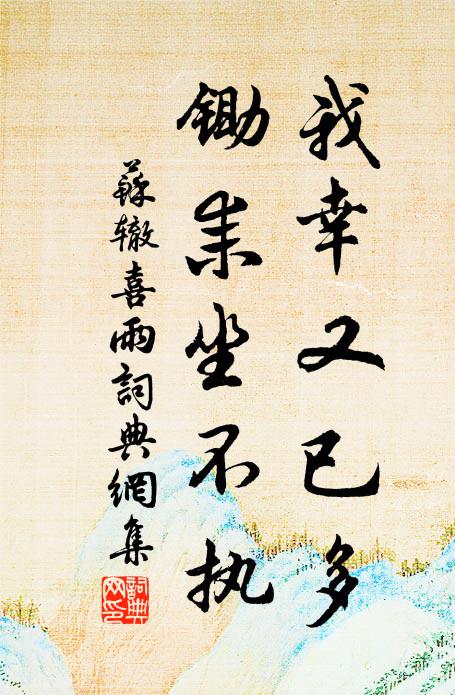 我幸又已多
鋤耒坐不执
蘇辙喜雨詞典網集
詞典网印